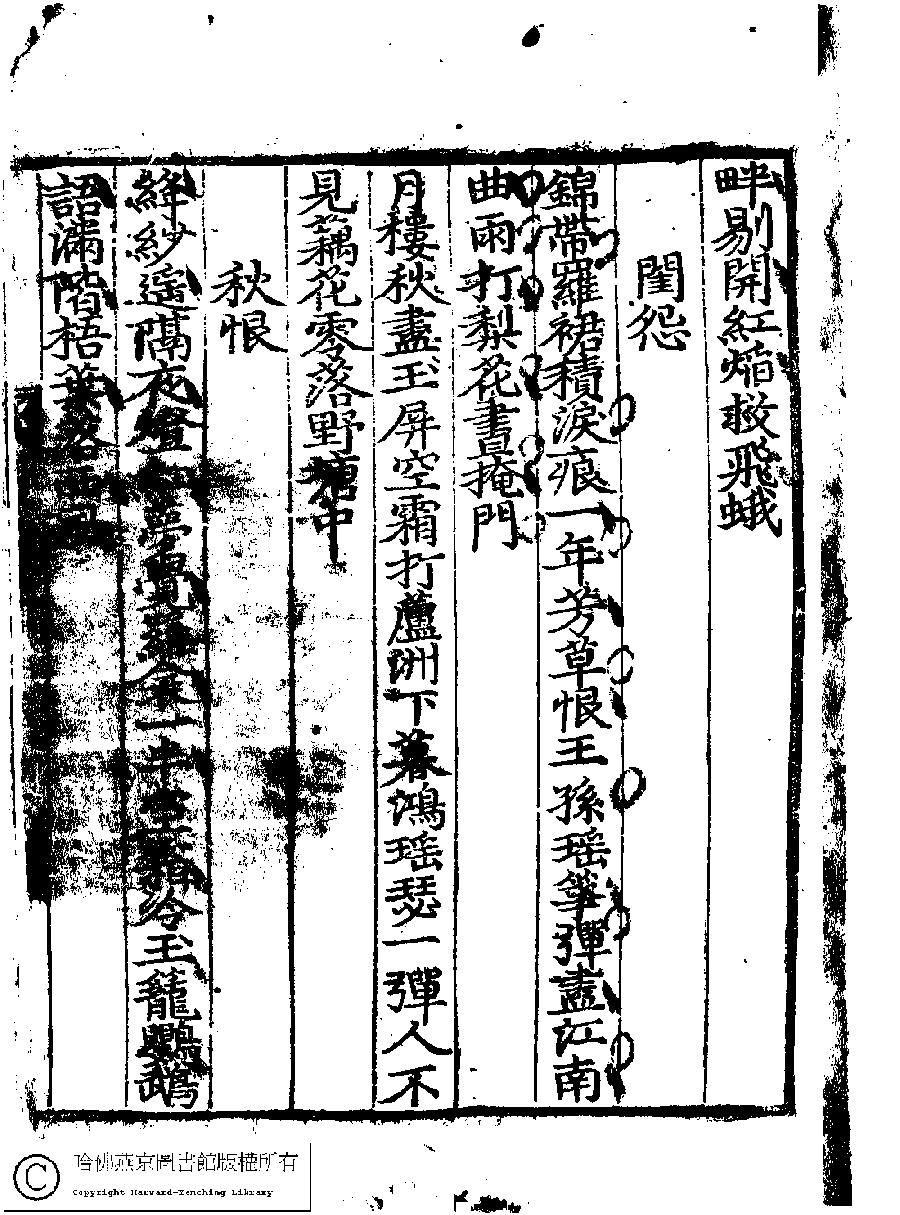 畔剔開紅焰救飛蛾
閨怨
錦帶羅裙積淚痕一年芳草恨王孫瑤箏彈盡江南
曲雨打梨花晝掩門
月樓秋盡玉屏空霜打蘆洲下暮鴻瑤瑟一彈人不
見藕花零落野塘中
秋恨
絳紗遙隔夜燈紅夢覺羅衾一半空霜冷玉籠鸚鵡
語滿階梧葉落西風
哈佛燕京圖書館版權所有
Copyright Harvard-Yenching Library